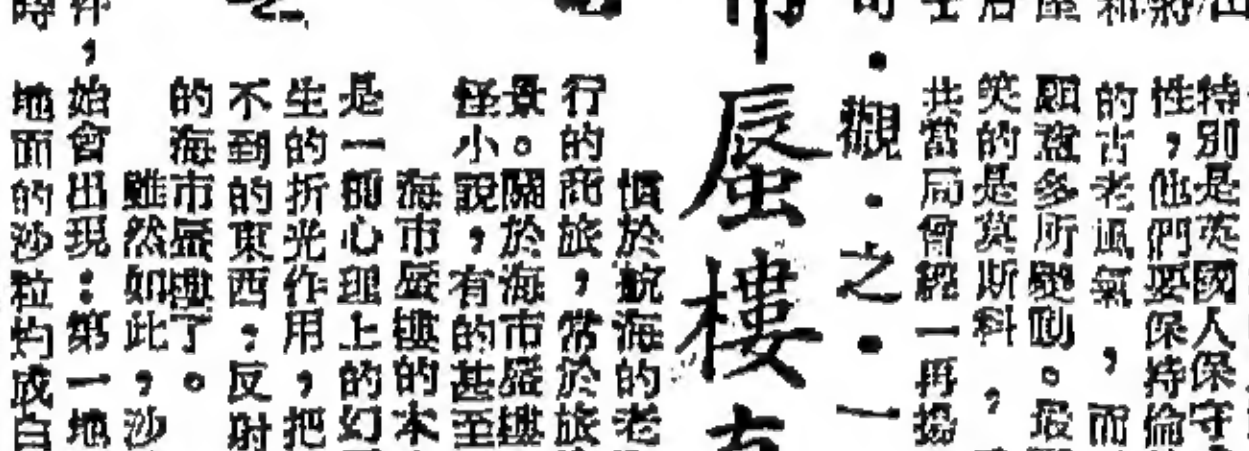 特別是英國人保守
性，他們要保持倫
的古老風氣，而
願意多所變動。最
笑的是莫斯科，
共當局曾經一再揚
觀·之·一
市蜃樓
慣於航海的老
行的商旅，常於旅
景。關於海市蜃樓
怪小說，有的甚至
海市蜃樓的本
是一部心理上的幻
生的折光作用，把
不到的東西，反射
的海市蜃樓了。
雖然如此，沙
始會出現：第一地
地面的沙粒灼成白